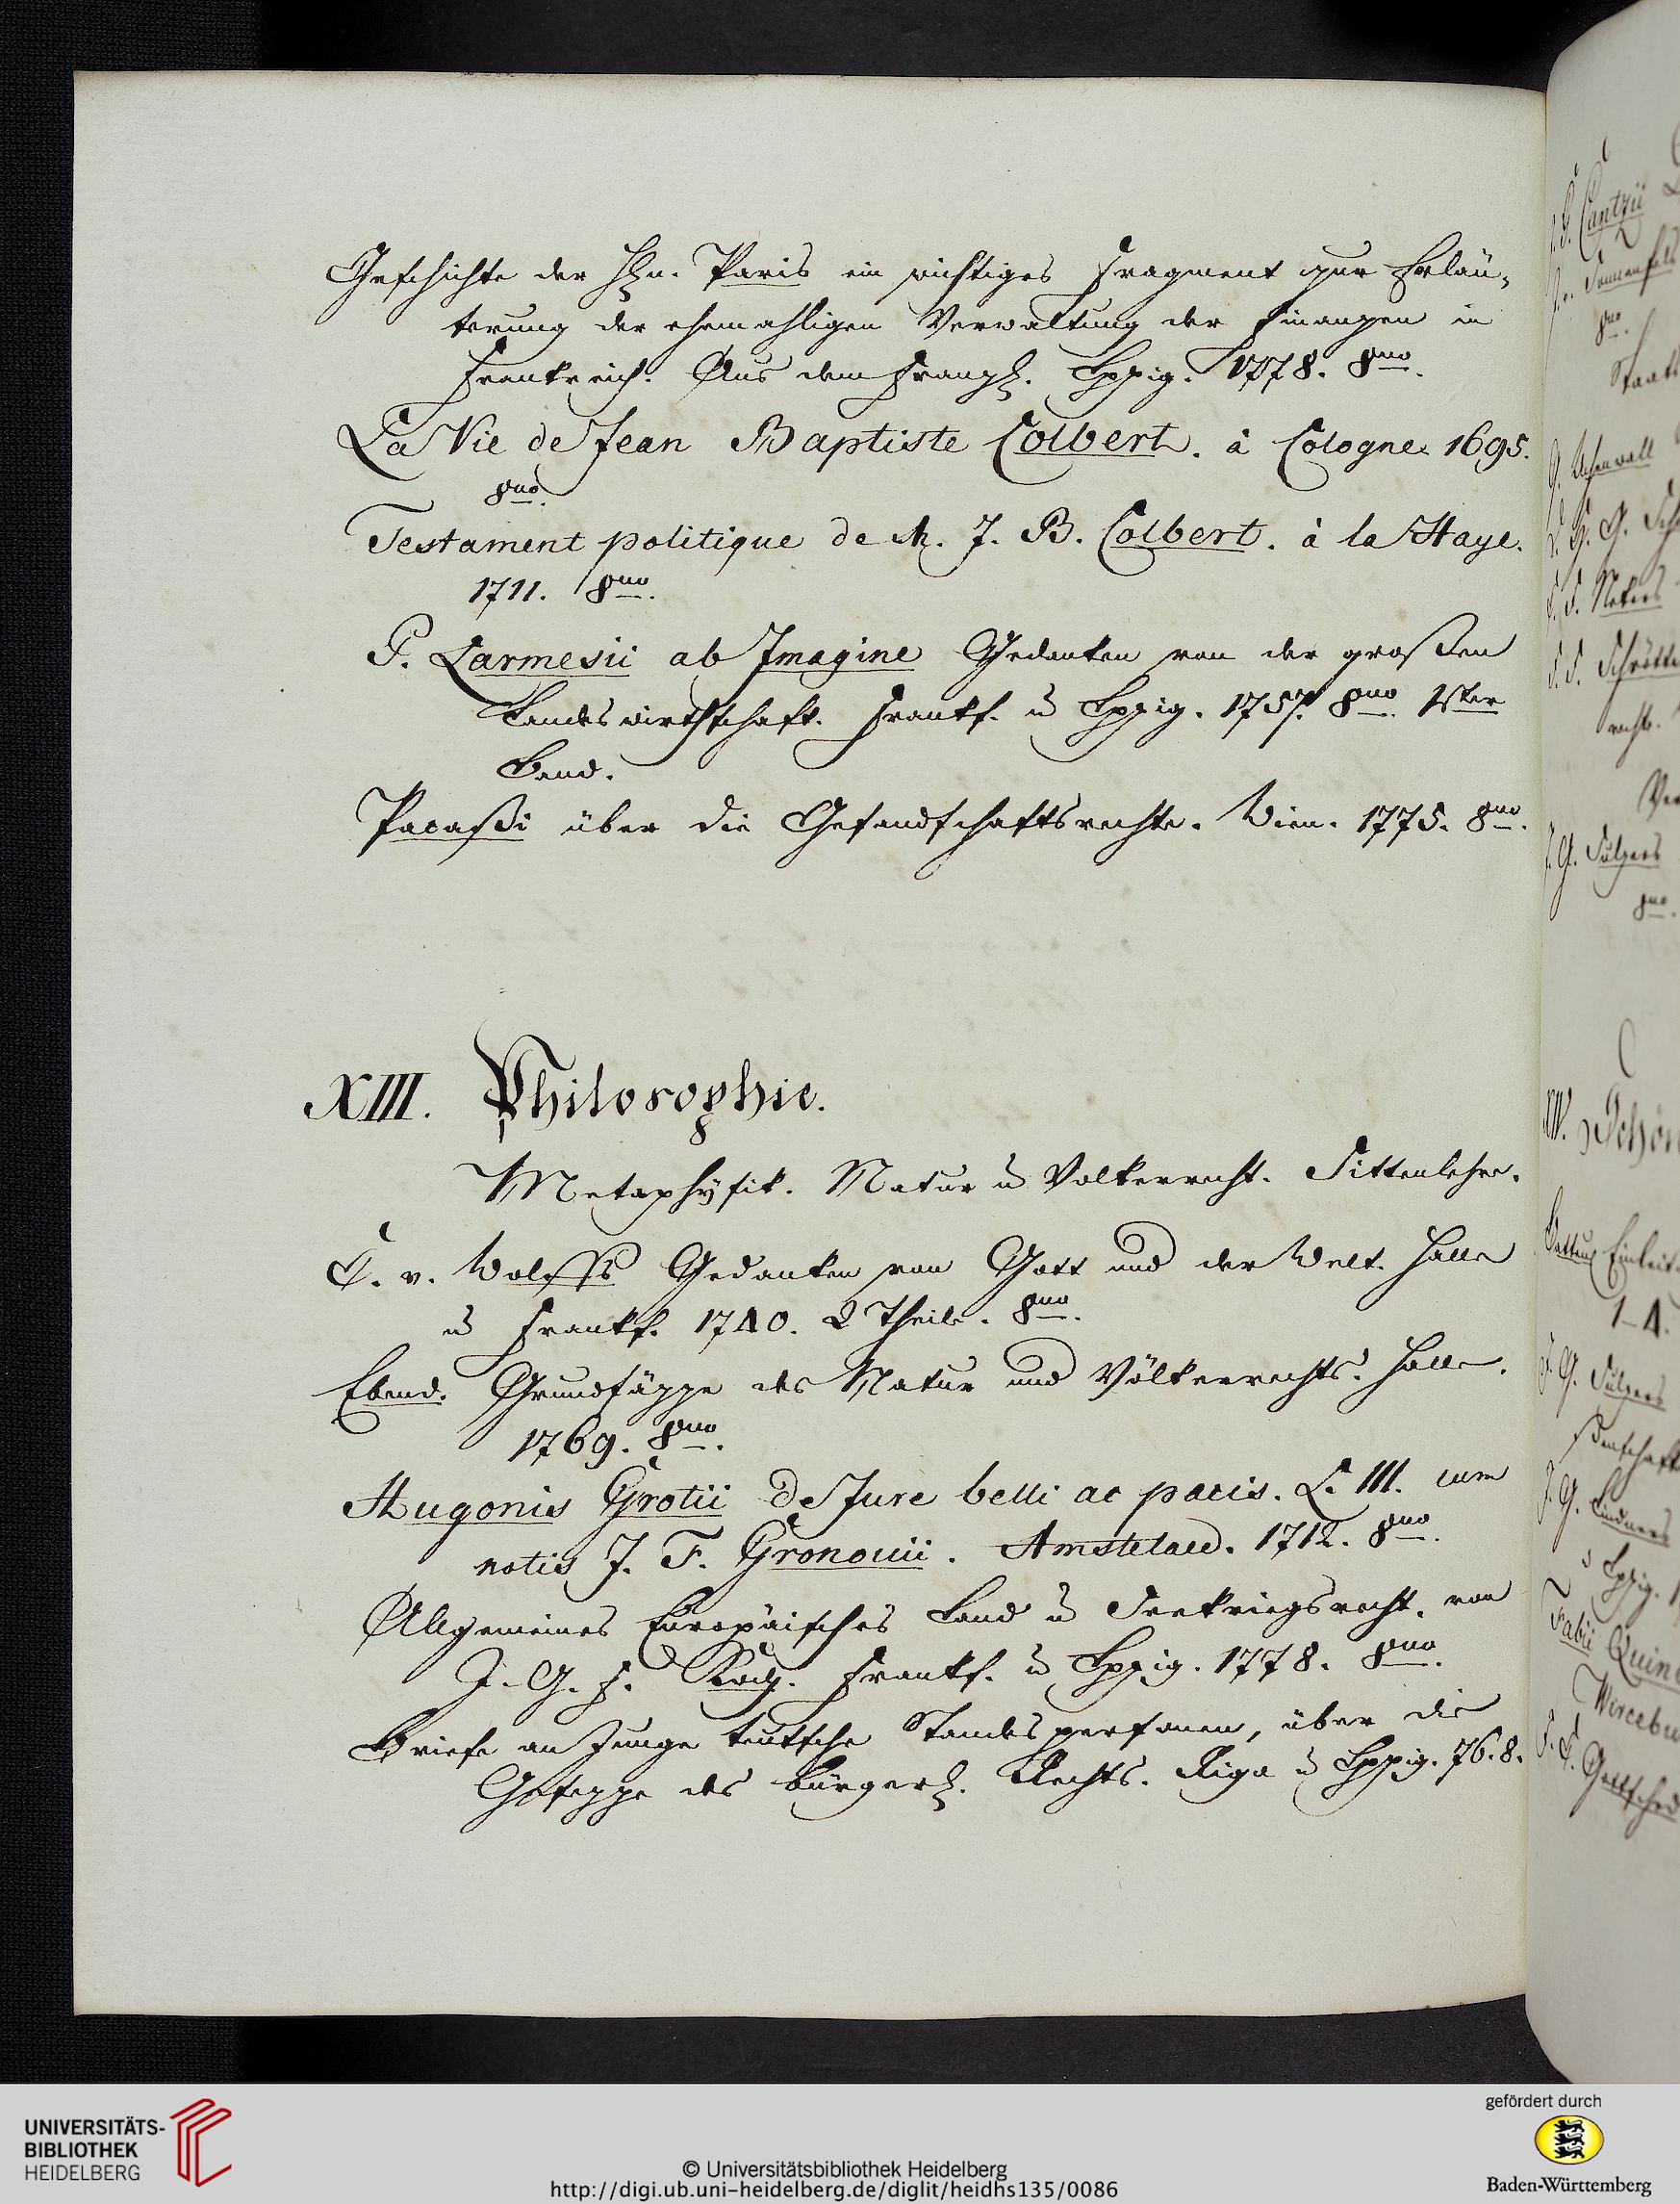 Geschichte der Hhn. Paris ein wichtiges Fragment zur Erläu-
terung der ehemahligen Verwaltung der Finanzen in
Frankreich. Aus dem Franzh. Lpzig. 1778. 8uo.
La Vie de Jean Baptiste Colbert. à Cologne 1695.
8uo.
Testament politique de M. J. B. Colbert. à la Haye.
1711. 8uo.
P. Larmesii ab Imagine Gedanken von der großen
Landeswirthschaft. Frankf. u Lpzig. 1757. 8uo. 1ster
Band.
Pacaßi über die Gesandschaftsrechte. Wien. 1775. 8uo.
XIII. Philosophie.
Metaphÿsik. Natur u Volkerrecht. Sittenlehre.
C. v. Wolffs Gedanken von Gott und der Welt. Halle
u Frankf. 1740. 2 Theile. 8uo.
Ebend. Grundsäzze des Natur und Völkerrechts. Halle.
1769. 8uo.
Hugonis Grotii de Jure belli ac pacis. L. III. cum
notis J. F. Gronouii. Amstelaed. 1712. 8uo.
Allgemeines Europäisches Land u Seekriegsrecht. von
J. G. F. Koch. Frankf. u Lpzig. 1778. 8uo.
Briefe an Junge teutsche Standespersonen, über die
Gesezze des bürgerl. Rechts. Riga u Lpzig. 76. 8.
Cantzii
Sonnenfels
8uo.
Staats
G. Achenwall
rechts.
J. G. Sulzers
8uo.
XIV. Schön
Einleit
1-4.
J. G. Sulzers
senschaft
J. G. Lindners
Lpzig.
Fabii Quinc
Wirceb
Gottsched
UNIVERSITÄTS-
BIBLIOTHEK
HEIDELBERG
© Universitätsbibliothek Heidelberg
http://digi.ub.uni-heidelberg.de/diglit/heidhs135/0086
gefördert durch
Baden-Württemberg